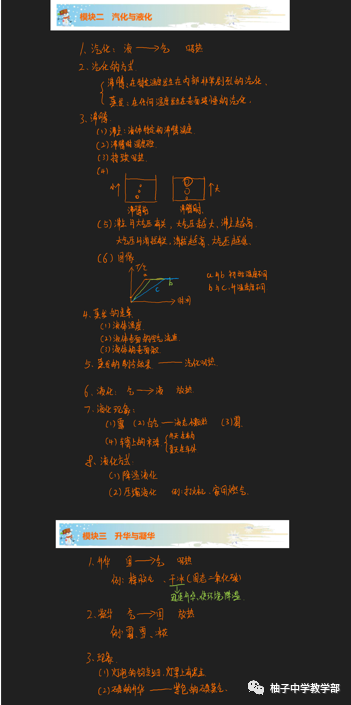 模块二 汽化与液化
1. 汽化: 液 → 气 吸热
2. 汽化的方式
沸腾: 在一定温度下在内部和表面剧烈的汽化.
蒸发: 在任何温度下在表面缓慢的汽化.
3. 沸腾
(1) 沸点: 液体沸腾的温度
(2) 沸腾时温度不变
(3) 持续吸热
(4)
小 大
沸腾前 沸腾时
(5) 沸点与大气压有关, 大气压越大, 沸点越高.
大气压与海拔有关, 海拔越高, 大气压越低
(6) 图像
T/℃
a b c
时间
a 与 b
b 与 c
4. 蒸发的快慢
(1) 液体温度
(2) 液体表面的空气流速
(3) 液体的表面积
5. 蒸发的制冷效果 —— 汽化吸热
6. 液化: 气 → 液 放热
7. 液化现象:
(1) 雾 (2) 白气 —— 液态小水滴 (3) 露
(4) 车窗上的水珠
8. 液化方式:
(1) 降温液化
(2) 压缩液化 例: 打火机、家用燃气
模块三 升华与凝华
1. 升华 固 → 气 吸热
例: 樟脑丸、干冰 (固态二氧化碳)
2. 凝华 气 → 固 放热
例: 霜、雪、冰花
3. 现象
(1) 灯泡的钨丝变细, 灯罩上有黑点
(2) 碘的升华 —— 紫色的碘蒸气
柚子中学教学部